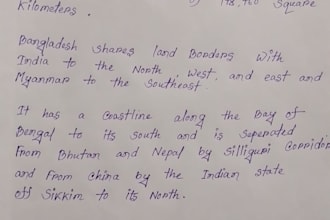 Square
Kilometers.
Bangladesh shares land Borders With
India to the North, West, and east and
Myanmar to the Southeast.
It has a Coastline along the Bay of
Bengal to its South and is Seperated
From Bhutan and Nepal by Silliguri Corridor
and From China by the Indian state
off Sikkim to its North.